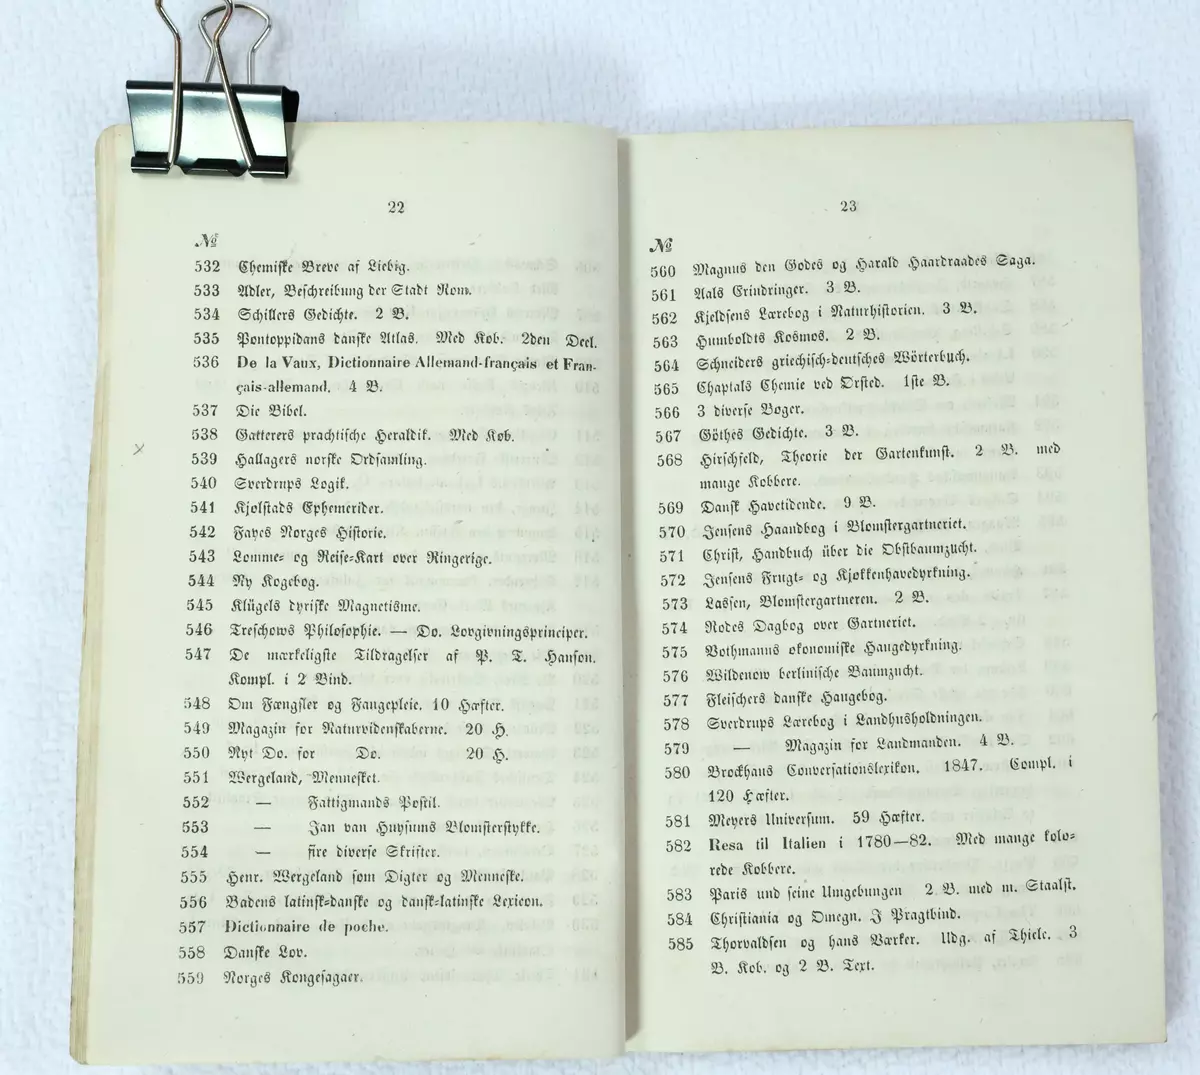 22
№
532 Chemiske Breve af Liebig.
533 Adler, Beschreibung der Stadt Rom.
534 Schillers Gedichte. 2 B.
535 Pontoppidans danske Atlas. Med Kob. 2den Deel.
536 De la Vaux, Dictionnaire Allemand-français et Fran-
çais-allemand. 4 B.
537 Die Bibel.
538 Gatterers prachtische Heraldik. Med Kob.
539 Hallagers norske Ordsamling.
540 Sverdrups Logik.
541 Kjolstads Ephemerider.
542 Fayes Norges Historie.
543 Lomme- og Reise-Kart over Ringerige.
544 Ny Kogebog.
545 Klügels dyriske Magnetisme.
546 Treschows Philosophie. — Do. Lovgivningsprinciper.
547 De mærkeligste Tildragelser af P. T. Hanson.
Kompl. i 2 Bind.
548 Om Fængsler og Fangepleie. 10 Hæfter.
549 Magazin for Naturvidenskaberne. 20 H.
550 Nyt Do. for Do. 20 H.
551 Wergeland, Mennesket.
552 — Fattigmands Postil.
553 — Jan van Huysums Blomsterstykke.
554 — fire diverse Skrifter.
555 Henr. Wergeland som Digter og Menneske.
556 Badens latinsk-danske og dansk-latinske Lexicon.
557 Dictionnaire de poche.
558 Danske Lov.
559 Norges Kongesagaer.
23
№
560 Magnus den Godes og Harald Haardraades Saga.
561 Aals Erindringer. 3 B.
562 Kjeldsens Lærebog i Naturhistorien. 3 B.
563 Humboldts Kosmos. 2 B.
564 Schneiders griechisch-deutsches Wörterbuch.
565 Chaptals Chemie ved Ørsted. 1ste B.
566 3 diverse Boger.
567 Göthes Gedichte. 3 B.
568 Hirschfeld, Theorie der Gartenkunst. 2 B. med
mange Kobbere.
569 Dansk Havetidende. 9 B.
570 Jensens Haandbog i Blomstergartneriet.
571 Christ, Handbuch über die Obstbaumzucht.
572 Jensens Frugt- og Kjøkkenhavedyrkning.
573 Lassen, Blomstergartneren. 2 B.
574 Rodes Dagbog over Gartneriet.
575 Vothmanns økonomiske Haugedyrkning.
576 Wildenow berlinische Baumzucht.
577 Fleischers danske Haugebog.
578 Sverdrups Lærebog i Landhusholdningen.
579 — Magazin for Landmanden. 4 B.
580 Brockhaus Conversationslexikon. 1847. Compl. i
120 Hæfter.
581 Meyers Universum. 59 Hæfter.
582 Resa til Italien i 1780—82. Med mange kolo-
rede Kobbere.
583 Paris und seine Umgebungen 2 B. med m. Staalst.
584 Christiania og Omegn. I Pragtbind.
585 Thorvaldsen og hans Værker. Udg. af Thiele. 3
B. Kob. og 2 B. Text.